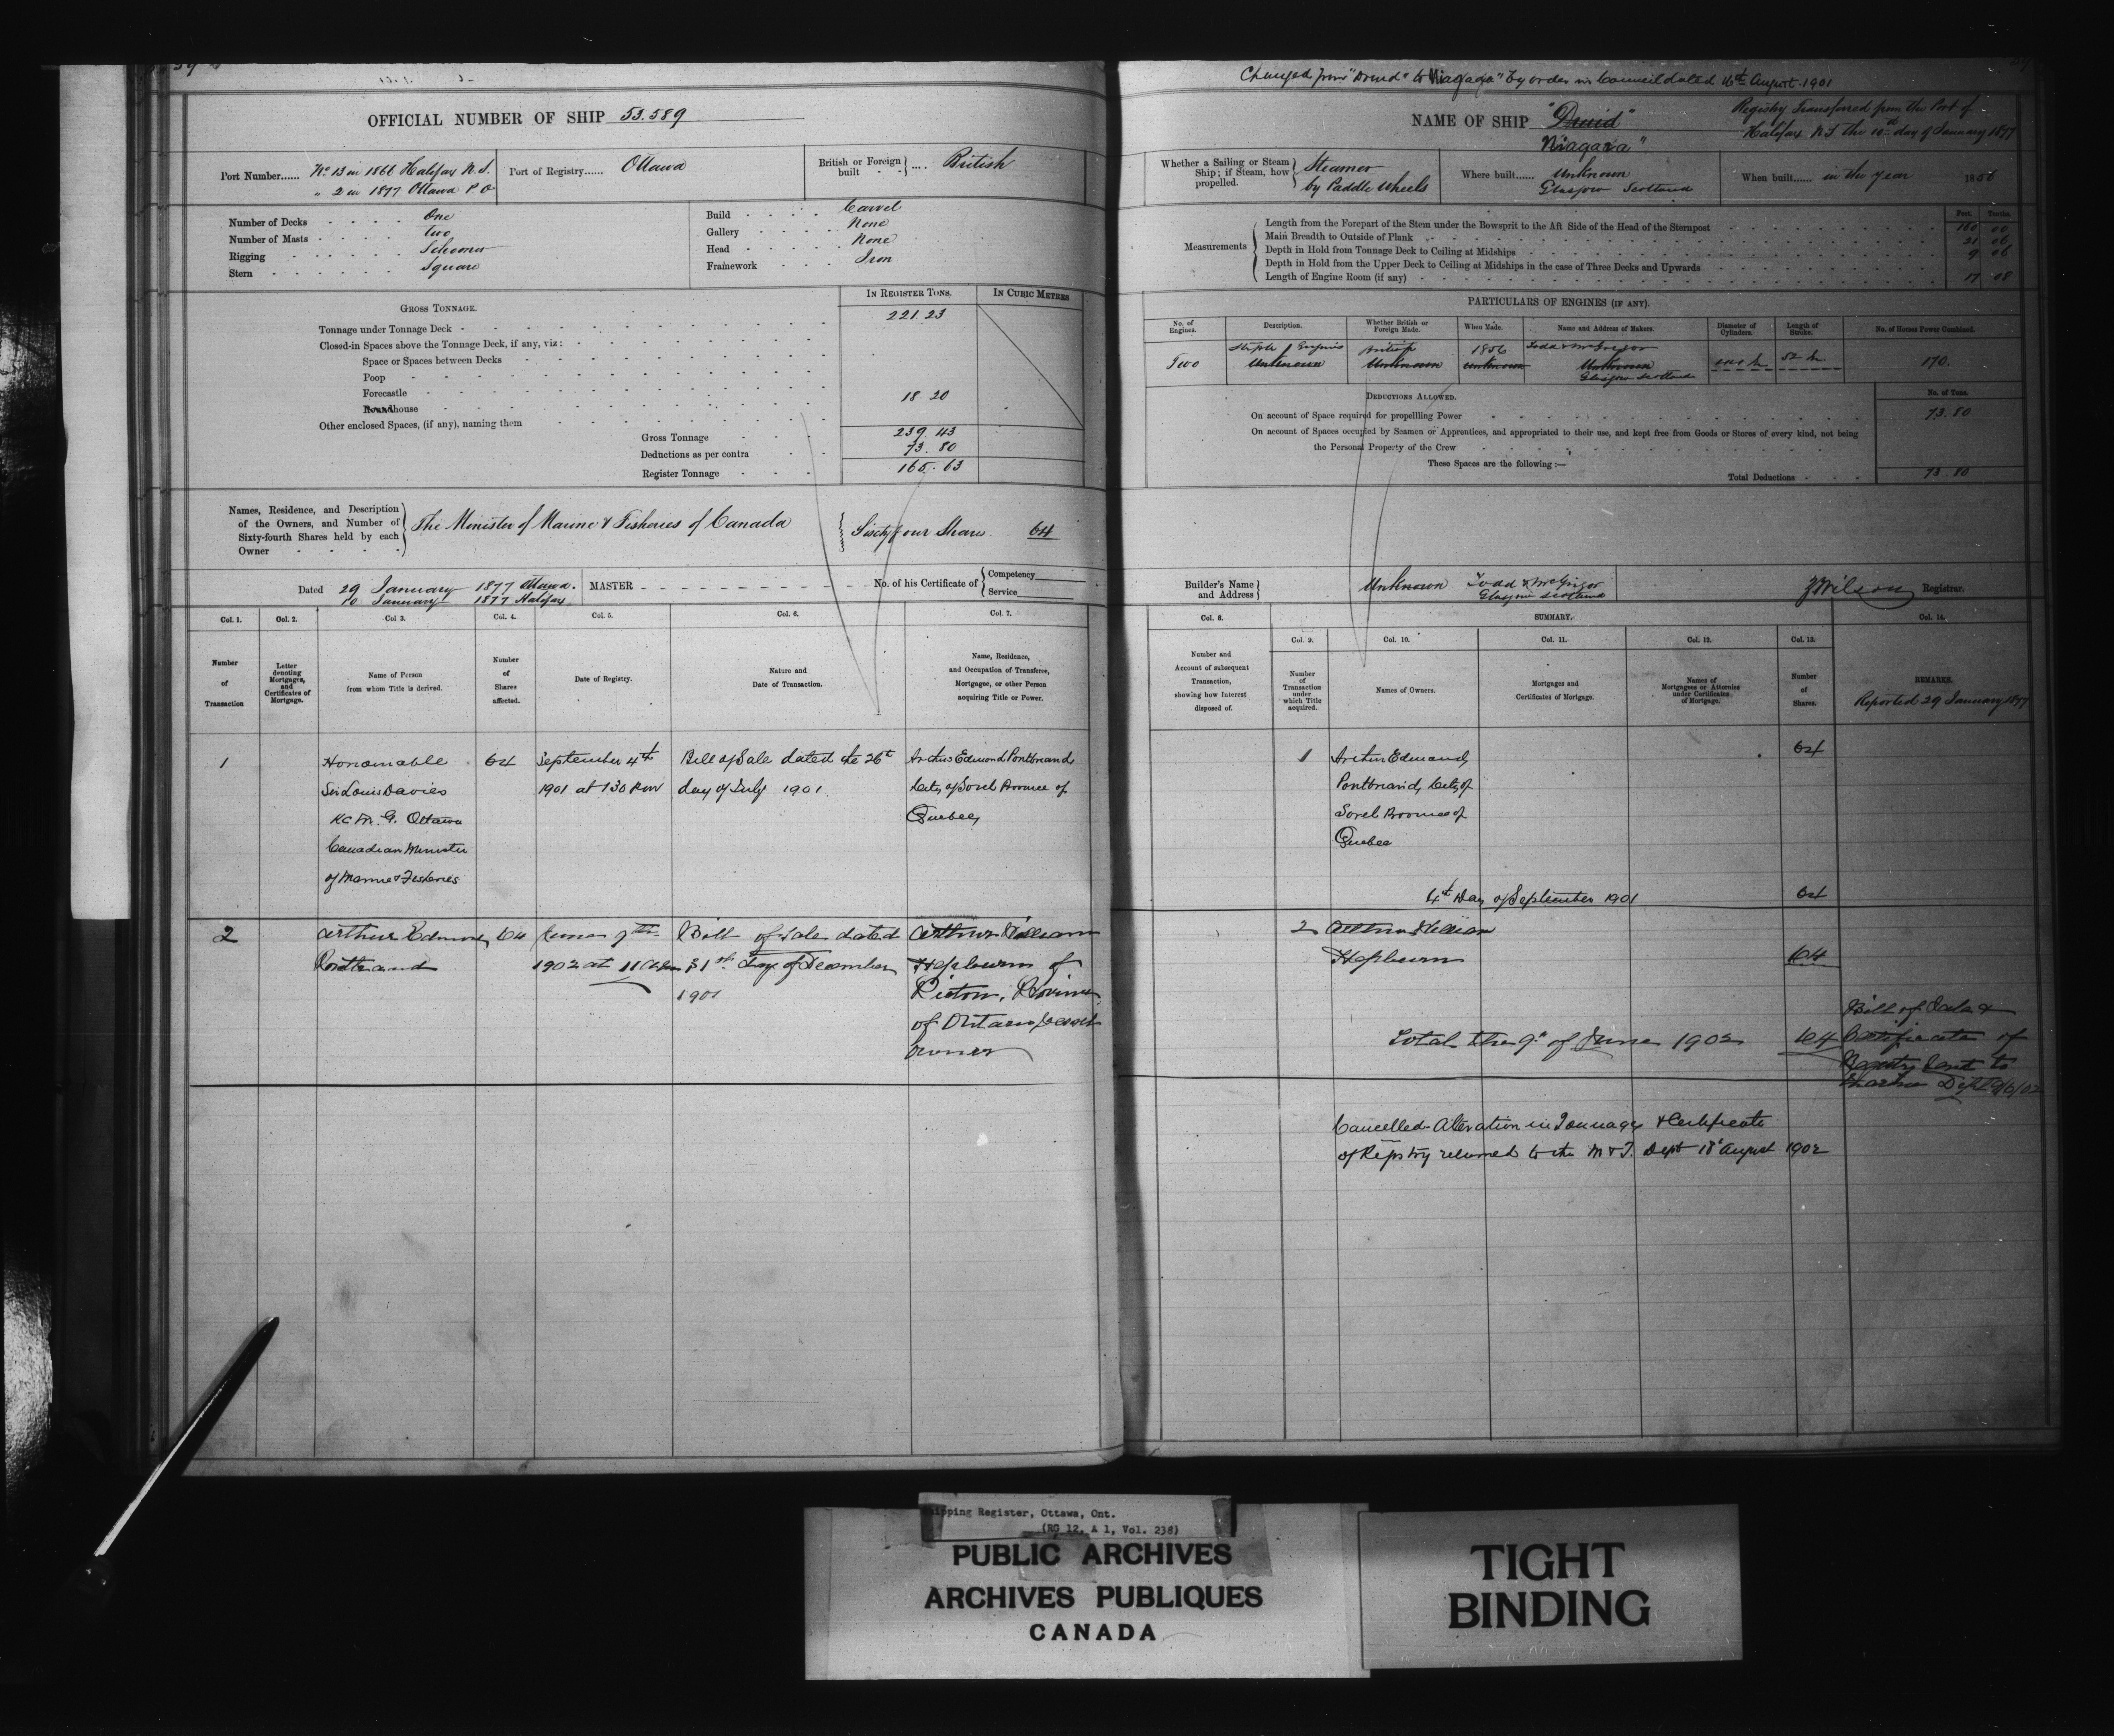 OFFICIAL NUMBER OF SHIP 53.589
Port Number...... No 13 in 1866 Halifax N.S.
" 2 in 1877 Ottawa P O
Port of Registry...... Ottawa
British or Foreign built - - .... British
Number of Decks - - - - One
Number of Masts - - - - two
Rigging - - - - - Schooner
Stern - - - - - Square
Build - - - - Carvel
Gallery - - - - None
Head - - - - None
Framework - - - Iron
GROSS TONNAGE.
IN REGISTER TONS.
IN CUBIC METRES
Tonnage under Tonnage Deck - 221.23
Closed-in Spaces above the Tonnage Deck, if any, viz:
Space or Spaces between Decks
Poop
Forecastle
Roundhouse 18.20
Other enclosed Spaces, (if any), naming them
Gross Tonnage 239.43
Deductions as per contra 73.80
Register Tonnage 165.63
Names, Residence, and Description
of the Owners, and Number of
Sixty-fourth Shares held by each
Owner
The Minister of Marine & Fisheries of Canada
Sixty four Shares 64
Dated 29 January 1877 Ottawa.
10 January 1877 Halifax
MASTER
No. of his Certificate of
Competency
Service
Col. 1. Col. 2. Col 3. Col. 4. Col. 5. Col. 6. Col. 7.
Number of Transaction
Letter denoting Mortgages, and Certificates of Mortgage.
Name of Person from whom Title is derived.
Number of Shares affected.
Date of Registry.
Nature and Date of Transaction.
Name, Residence, and Occupation of Transferee, Mortgagee, or other Person acquiring Title or Power.
1
Honourable
Sir Louis Davies
K C M. G. Ottawa
Canadian Minister
of Marine & Fisheries
64
September 4th
1901 at 1 30 P.M
Bill of Sale dated the 26th
day of July 1901
Arthur Edmond Pontbriand
City of Sorel Province of
Quebec
2
Arthur Edmond
Pontbriand
64
June 9th
1902 at 11 a.m
Bill of Sale dated
31st day of December
1901
Arthur William
Hepburn of
Picton, Province
of Ontario
owner
Changed from "Druid" to "Niagara" by order in Council dated 16th August 1901
NAME OF SHIP "Druid"
"Niagara"
Registry Transferred from the Port of
Halifax N.S. the 10th day of January 1877
Whether a Sailing or Steam
Ship; if Steam, how
propelled.
Steamer
by Paddle Wheels
Where built...... Unknown
Glasgow Scotland
When built...... in the year 1856
Measurements
Feet. Tenths.
Length from the Forepart of the Stem under the Bowsprit to the Aft Side of the Head of the Sternpost 160 00
Main Breadth to Outside of Plank 21 06
Depth in Hold from Tonnage Deck to Ceiling at Midships 9 06
Depth in Hold from the Upper Deck to Ceiling at Midships in the case of Three Decks and Upwards
Length of Engine Room (if any) 17 08
PARTICULARS OF ENGINES (IF ANY).
No. of Engines.
Description.
Whether British or Foreign Made.
When Made.
Name and Address of Makers.
Diameter of Cylinders.
Length of Stroke.
No. of Horses Power Combined.
Two
Steeple Engines
Unknown
British
Unknown
1856
Unknown
Todd & McGregor
Unknown
Glasgow Scotland
52 in.
170.
DEDUCTIONS ALLOWED.
No. of Tons.
On account of Space required for propellling Power 73.80
On account of Spaces occupied by Seamen or Apprentices, and appropriated to their use, and kept free from Goods or Stores of every kind, not being
the Personal Property of the Crew
These Spaces are the following :—
Total Deductions 73.80
Builder's Name
and Address
Unknown Todd & McGrigor
Glasgow Scotland
J Wilson Registrar.
Col. 8.
SUMMARY.
Col. 14.
Col. 9. Col. 10. Col. 11. Col. 12. Col. 13.
Number and Account of subsequent Transaction, showing how Interest disposed of.
Number of Transaction under which Title acquired.
Names of Owners.
Mortgages and Certificates of Mortgage.
Names of Mortgagees or Attornies under Certificates of Mortgage.
Number of Shares.
REMARKS.
Reported 29 January 1877
1
Arthur Edmond
Pontbriand, City of
Sorel Province of
Quebec
64
4th Day of September 1901 64
2 Arthur William
Hepburn 64
Total the 9th of June 1902 64
Bill of Sale &
Certificate of
Registry sent to
Marine Dept 9/6/02
Cancelled Alteration in Tonnage & Certificate
of Registry returned to the M & F. Dept 18th August 1902
Shipping Register, Ottawa, Ont.
(RG 12, A 1, Vol. 238)
PUBLIC ARCHIVES
ARCHIVES PUBLIQUES
CANADA
TIGHT
BINDING